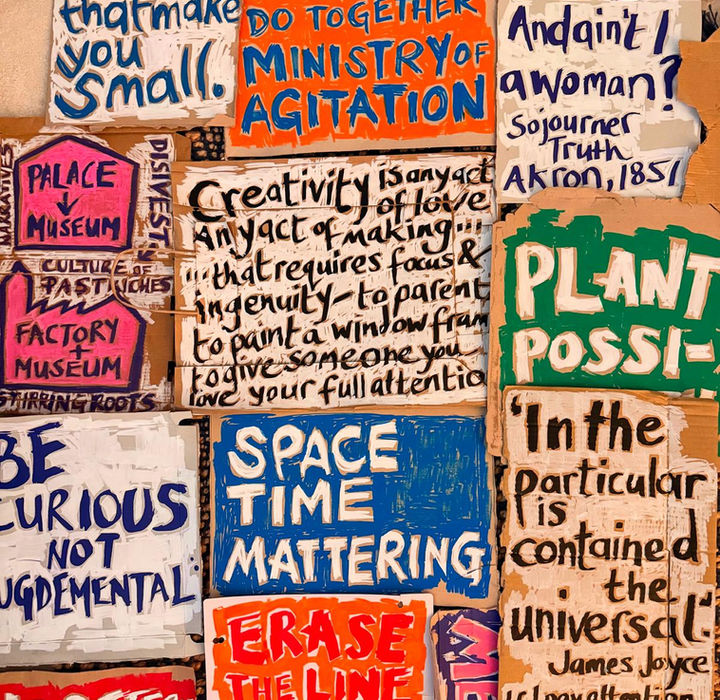 that make
you
Small.
DO TOGETHER
MINISTRY OF
AGITATION
And ain't I
a woman?
Sojourner
Truth
Akron, 1851
NARRATIVES
PALACE
↓
MUSEUM
DISIVEST
CULTURE OF
PASTICHES
FACTORY
+
MUSEUM
STIRRING ROOTS
Creativity is any act
of love
Any act of making...
...that requires focus &
ingenuity - to parent
to paint a window fram
to give someone you
love your full attentio
PLANT
POSSI-
BE
CURIOUS
NOT
UGDEMENTAL
SPACE
TIME
MATTERING
'In the
particular
is
contained
the
universal.'
James Joyce
ERASE
THE LINE